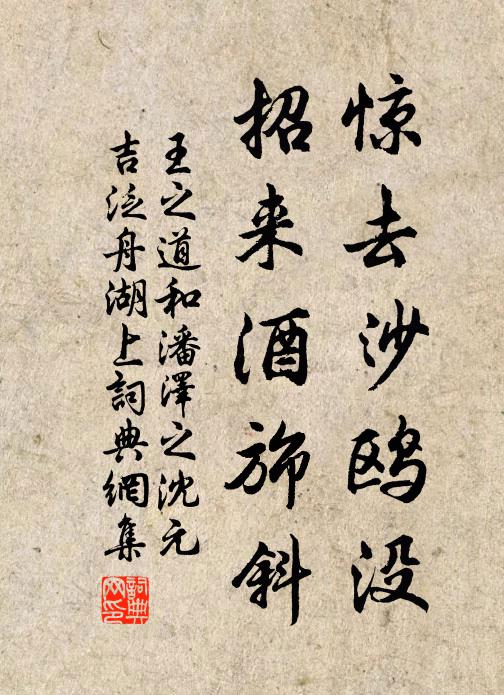 惊去沙鸥没
招来酒斾斜
王之道和潘澤之沈元
吉泛舟湖上詞典網集
詞典
网印